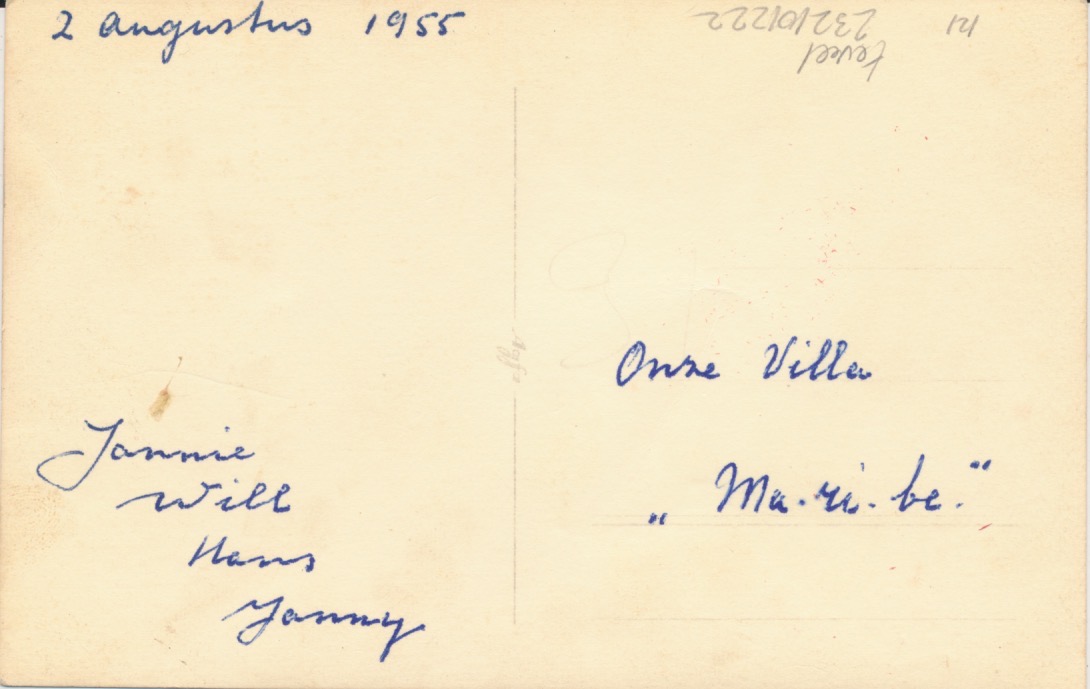 2 augustus 1955
232101222
Jannie
Will
Hans
Janny
Agfa
Onze Villa
„ Ma-ri-be."